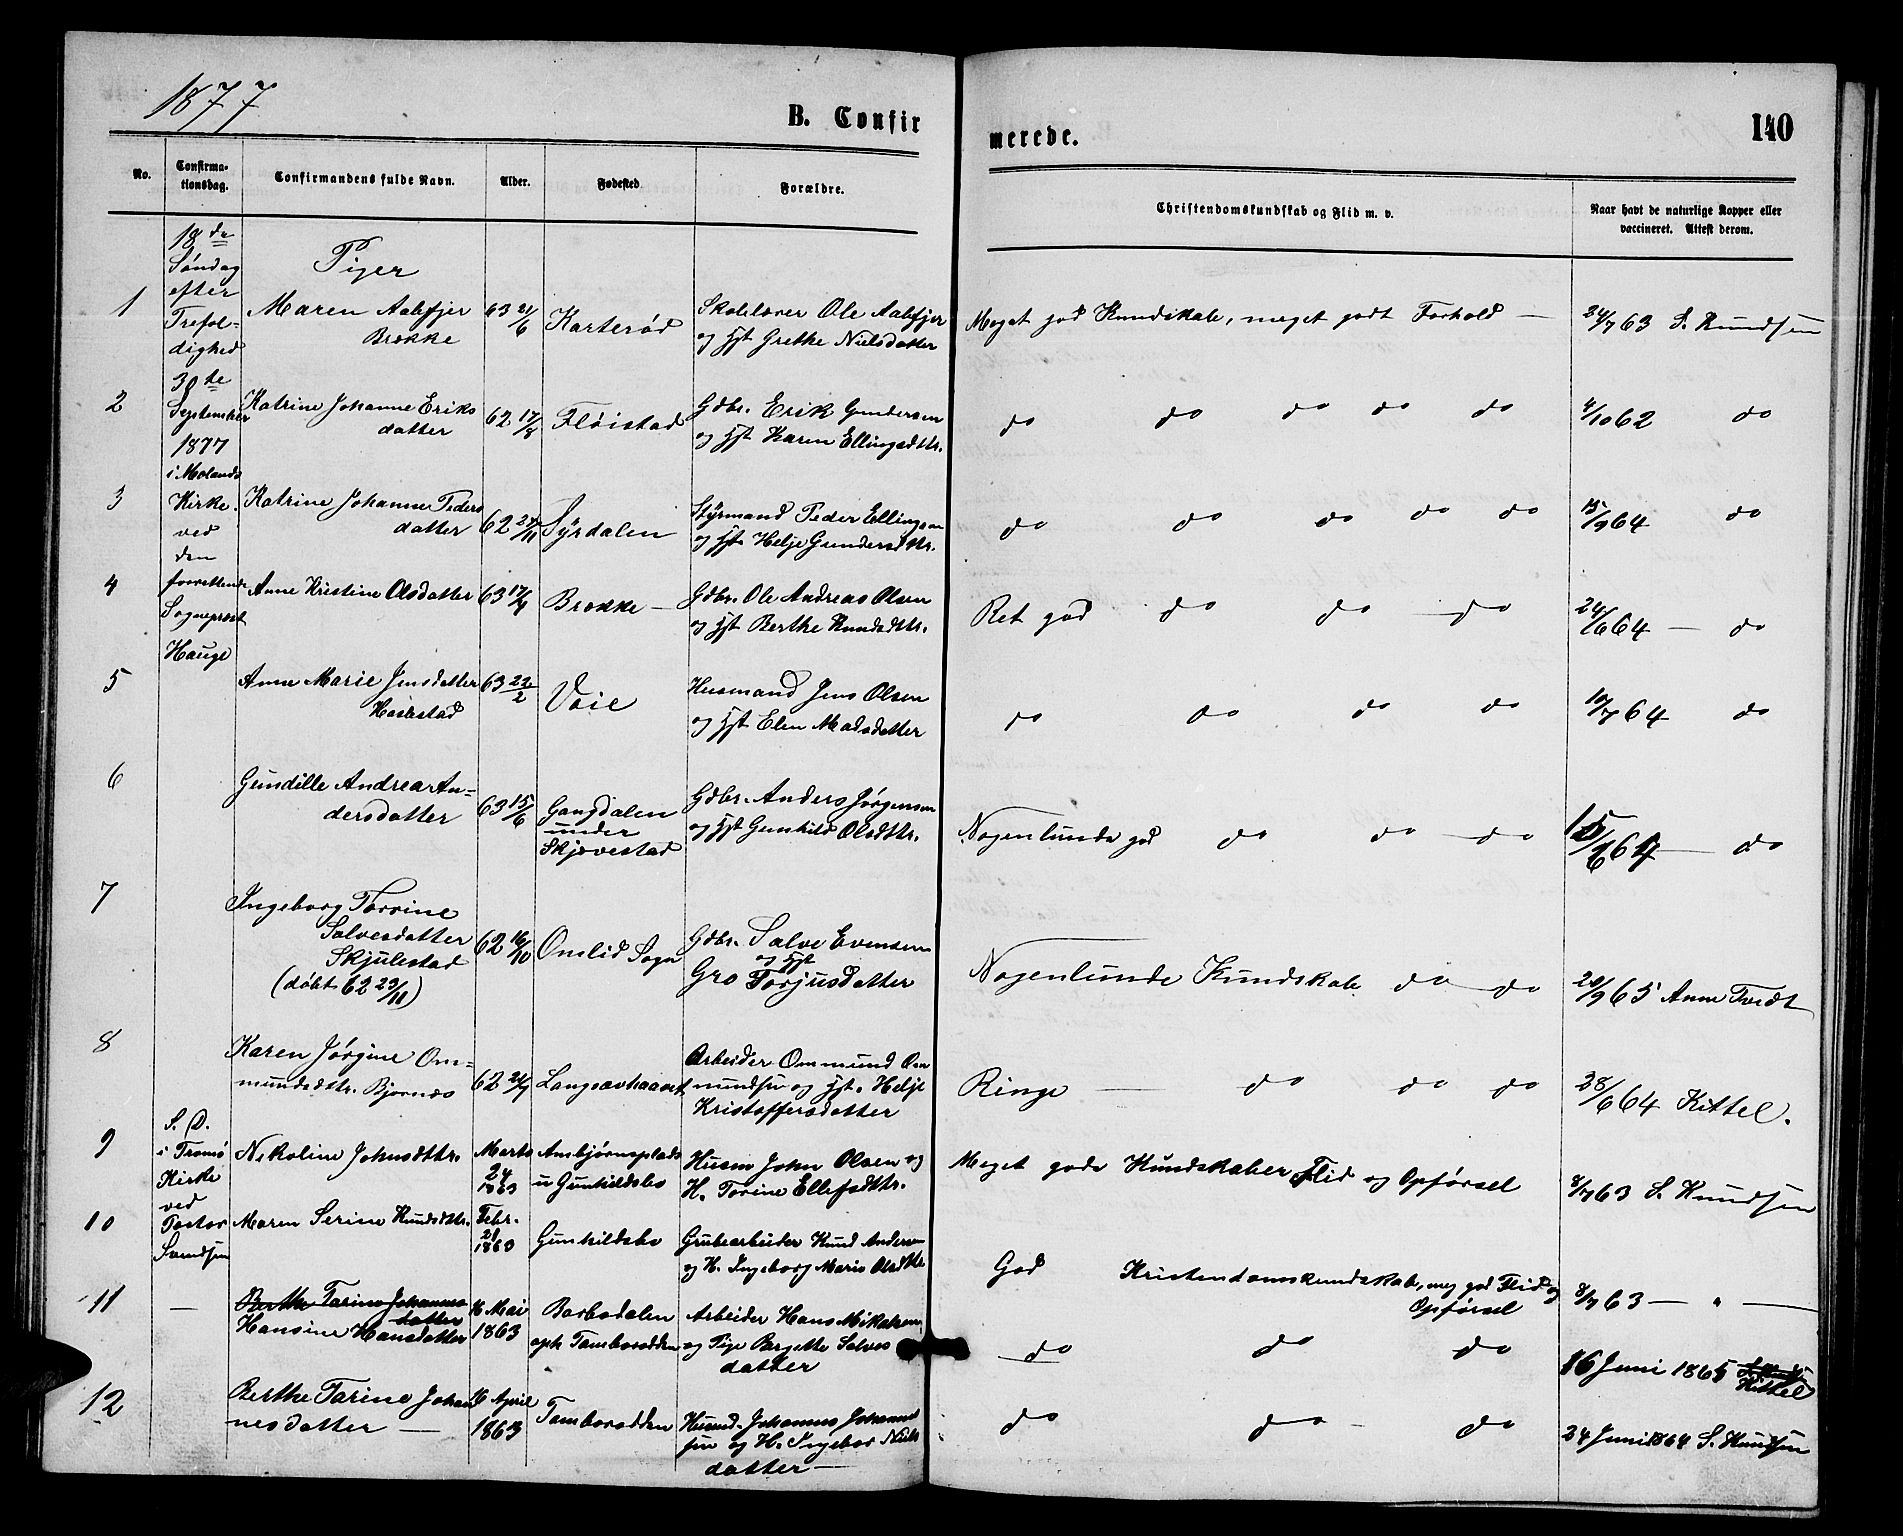 1877
B. Confirmerede.
140
No.
Confirmationsdag.
Confirmandens fulde Navn.
Alder.
Fødested
Forældre.
Christendomskundskab og Flid m. v.
Naar havt de naturlige Kopper eller vaccineret. Attest derom.
18de Søndag efter Trefoldighed 30te September 1877 i Molands Kirke ved den forrettende Sognepræst Hauge
Piger
1 Maren Aabfjer Brekke 63 21/6 Karterød Skolelærer Ole Aabfjer og Hst Grethe Nielsdatter Meget god Kundskab, meget godt Forhold — 24/7 63 S. Knudsen
2 Katrine Johanne Eriksdatter 62 17/8 Fløistad Gdbr. Erik Gundersen og Hst Karen Ellingsdttr. do do do do do 4/10 62 do
3 Katrine Johanne Pedersdatter 62 27/11 Syrdalen Styrmand Peder Ellingsen og Hst Helje Gundersdttr. do do do do do 15/9 64 do
4 Anne Kristine Olsdatter 63 17/4 Brække — Gdbr. Ole Andreas Olsen og Hst Berthe Knudsdttr. Ret god do do do 24/6 64 — do
5 Anne Marie Jensdatter 63 22/2 Voie Husmand Jens Olsen og Hst Elen Madsdatter do do do do 10/7 64 do
6 Gundille Andrea Andersdatter 63 15/6 Gangdalen under Skjævestad Gdbr. Anders Jørgensen og Hst Gunhild Olsdttr. Nogenlunde god do do do 15/6 64 — do
7 Ingeborg Torrine Salvesdatter Skjulestad (døbt 62 23/11) 62 16/10 Omlid Sogn Gdbr. Salve Evensen og Hst Gro Torjusdatter Nogenlunde Kundskab do do 20/9 65 Anne Tvedt
8 Karen Jørgine Ommundsdttr. Bjørnæs 62 21/7 Langsævhaavet Arbeider Ommund Ommundsen og Hst. Helje Kristoffersdatter Ringe — do do do 28/6 64 Kittel.
S. D. i Tromø Kirke ved Pastor Svendsen
9 Nikoline Johnsdttr. Marts 24 1863 Ambjørnsplads u Gunhildsbo Husm John Olsen og H. Torine Ellefsdttr. Meget gode Kundskaber Flid og Opførsel 8/7 63 S. Knudsen
10 Maren Serine Knudsdttr. Febr. 21 1863 Gunhildsbo Grubearbeider Knud Andersen og H. Ingeborg Marie Olsdttr God Kristendomskundskab, meg god Flid og Opførsel 8/7 63 — " —
11 — Berthe Tarine Johannesdatter Hansine Hansdatter 16 Mai 1863 Barbodalen oph Tamborodden Arbeider Hans Mikalsen og Pige Bergette Salvesdatter do do do 16 Juni 1865 Kittel
12 Berthe Tarine Johannesdatter — 16 April 1863 Tamborodden Husmd. Johannes Johannessen og H. Ingebor Nielsdatter — do do do 24 Juni 1864 S. Knudsen